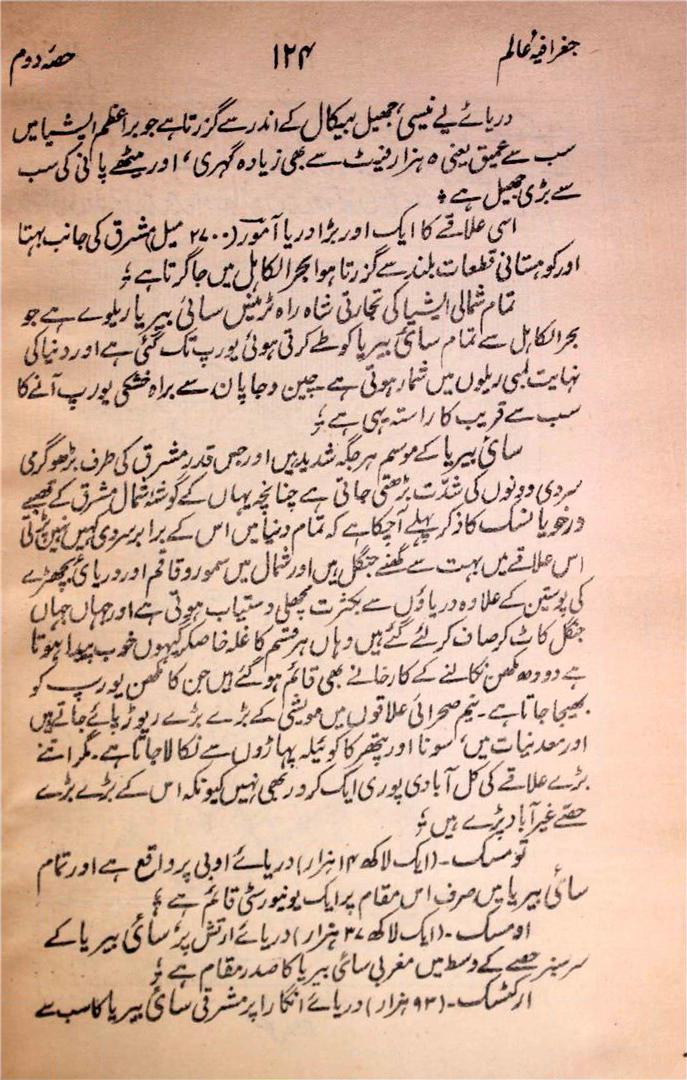 جغرافیۂ عالم
۱۲۴
حصّہ دوم
دریائے ینیسی، جھیل بیکال کے اندر سے گزرتا ہے جو براعظم ایشیا میں
سب سے عمیق یعنی ۵ ہزار فیٹ سے بھی زیادہ گہری، اور میٹھے پانی کی سب
سے بڑی جھیل ہے ؛
اسی علاقے کا ایک اور بڑا دریا آمور (۲۷۰۰ میل) مشرق کی جانب بہتا
اور کوہستانی قطعات بلند سے گزرتا ہوا بحر الکاہل میں جا گرتا ہے ؛
تمام شمالی ایشیا کی تجارتی شاہ راہ ٹرینس سائی بیریا ریلوے ہے جو
بحر الکاہل سے تمام سائی بیریا کو طے کرتی ہوئی یورپ تک گئی ہے اور دنیا کی
نہایت لمبی ریلوں میں شمار ہوتی ہے۔ چین و جاپان سے براہ خشکی یورپ آنے کا
سب سے قریب کا راستہ یہی ہے ؛
سائی بیریا کے موسم ہر جگہ شدید ہیں اور جس قدر مشرق کی طرف بڑھو گرمی
سردی دونوں کی شدّت بڑھتی جاتی ہے چنانچہ یہاں کے گوشۂ شمال مشرق کے قصبے
ورخویانسک کا ذکر پہلے آچکا ہے کہ تمام دنیا میں اس کے برابر سردی کہیں نہیں پڑتی
اس علاقے میں بہت سے گھنے جنگل ہیں اور شمال میں سمور و قاقم اور دریائی بچھڑے
کی پوستین کے علاوہ دریاؤں سے بکثرت مچھلی دستیاب ہوتی ہے اور جہاں جہاں
جنگل کاٹ کر صاف کر لئے گئے ہیں وہاں ہر قسم کا غلہ خاصکر گیہوں خوب پیدا ہوتا
ہے دودھ مکھن نکالنے کے کارخانے بھی قائم ہو گئے ہیں جن کا مکھن یورپ کو
بھیجا جاتا ہے۔ نیم صحرائی علاقوں میں مویشی کے بڑے بڑے ریوڑ پائے جاتے ہیں
اور معدنیات میں، سونا اور پتھر کا کوئیلہ پہاڑوں سے نکالا جاتا ہے۔ مگر اتنے
بڑے علاقے کی کل آبادی پوری ایک کرور بھی نہیں کیونکہ اس کے بڑے بڑے
حصّے غیر آباد پڑے ہیں ؛
تومسک۔ (ایک لاکھ ۱۴ ہزار) دریائے اوبی پر واقع ہے اور تمام
سائی بیریا میں صرف اس مقام پر ایک یونیورسٹی قائم ہے ؛
اومسک۔ (ایک لاکھ ۳۷ ہزار) دریائے ارتش پر، سائی بیریا کے
سرسبز حصے کے وسط میں مغربی سائی بیریا کا صدر مقام ہے ؛
ارکٹسک۔ (۹۳ ہزار) دریائے انگارا پر مشرقی سائی بیریا کا سب سے